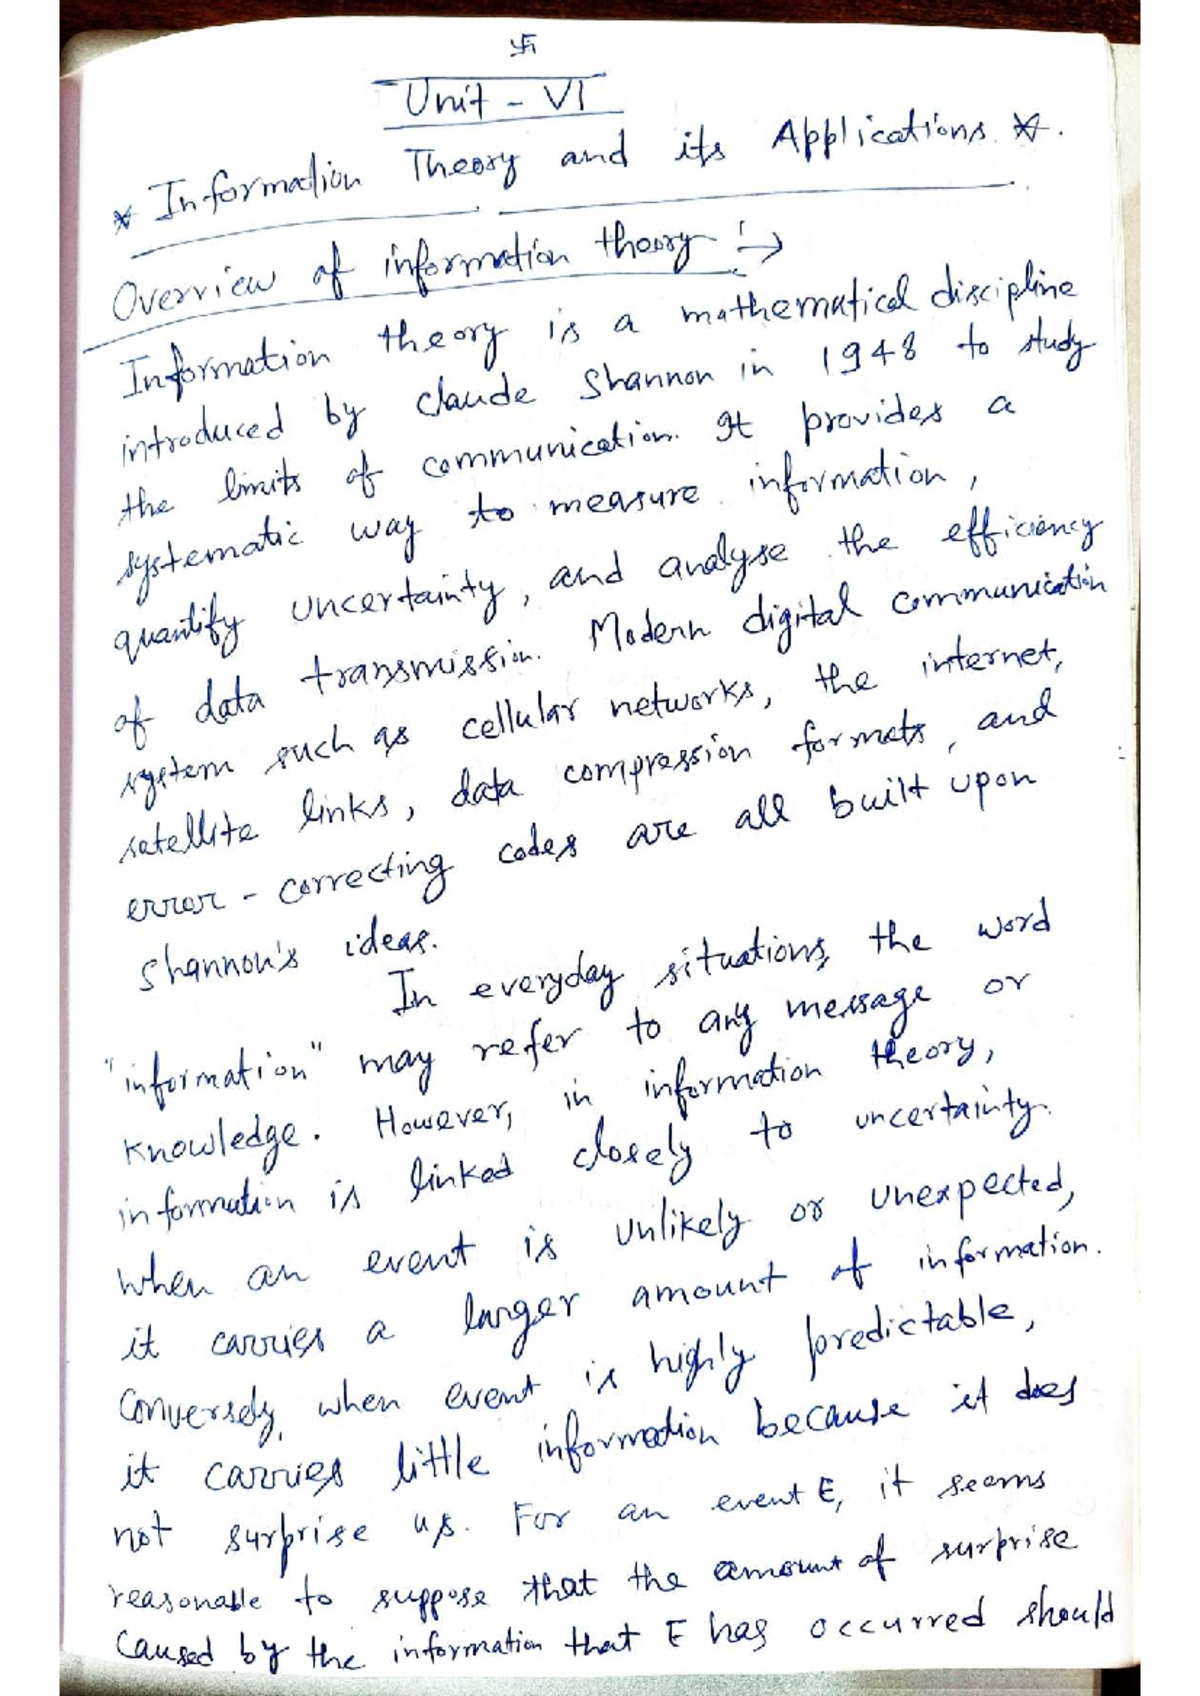 卐
Unit - VI
* Information Theory and its Applications *.
Overview of information theory :→
Information theory is a mathematical discipline
introduced by Claude Shannon in 1948 to study
the limits of communication. It provides a
systematic way to measure information,
quantify uncertainty, and analyse the efficiency
of data transmission. Modern digital communication
system such as cellular networks, the internet,
satellite links, data compression formats, and
error - correcting codes are all built upon
Shannon's ideas.
In everyday situations, the word
"information" may refer to any message or
knowledge. However, in information theory,
information is linked closely to uncertainty.
When an event is unlikely or unexpected,
it carries a larger amount of information.
Conversely, when event is highly predictable,
it carries little information because it does
not surprise us. For an event E, it seems
reasonable to suppose that the amount of surprise
caused by the information that E has occurred should